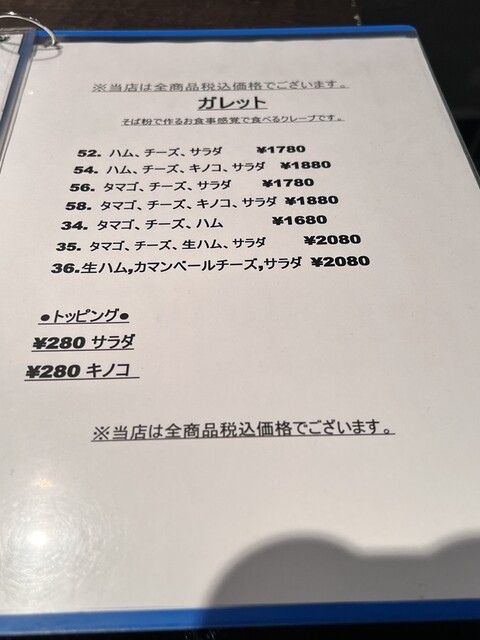 ※当店は全商品税込価格でございます。
ガレット
そば粉で作るお食事感覚で食べるクレープです。
52. ハム、チーズ、サラダ ¥1780
54. ハム、チーズ、キノコ、サラダ ¥1880
56. タマゴ、チーズ、サラダ ¥1780
58. タマゴ、チーズ、キノコ、サラダ ¥1880
34. タマゴ、チーズ、ハム ¥1680
35. タマゴ、チーズ、生ハム、サラダ ¥2080
36.生ハム,カマンベールチーズ,サラダ ¥2080
●トッピング●
¥280 サラダ
¥280 キノコ
※当店は全商品税込価格でございます。